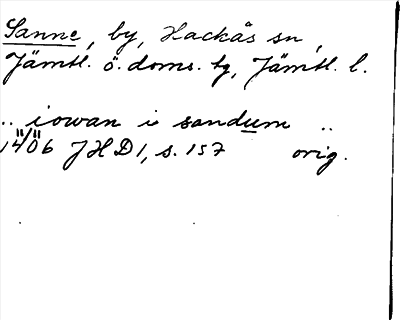 Sanne, by, Hackås sn,
Jämtl. ö. doms. tg, Jämtl. l.
.. iowan i sandum ..
14/11 06 JHD 1, s. 157 orig.